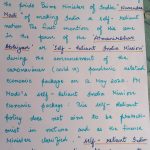 the pride Prime Minister of India Narendra
Modi of making India a self-reliant
nation. The first mention of this came
in the form of the 'Atmanirbhar
Abhiyan' or 'Self-Reliant India Mission'
during the announcement of the
coronavirus (covid 19) pandemic related
economic package on 12 May 2020. PM
Modi's self-reliant India Mission
Economic package. This self-reliant
policy does not aim to be protection-
ist in nature and as the Finance
Minister clarified, self-reliant India